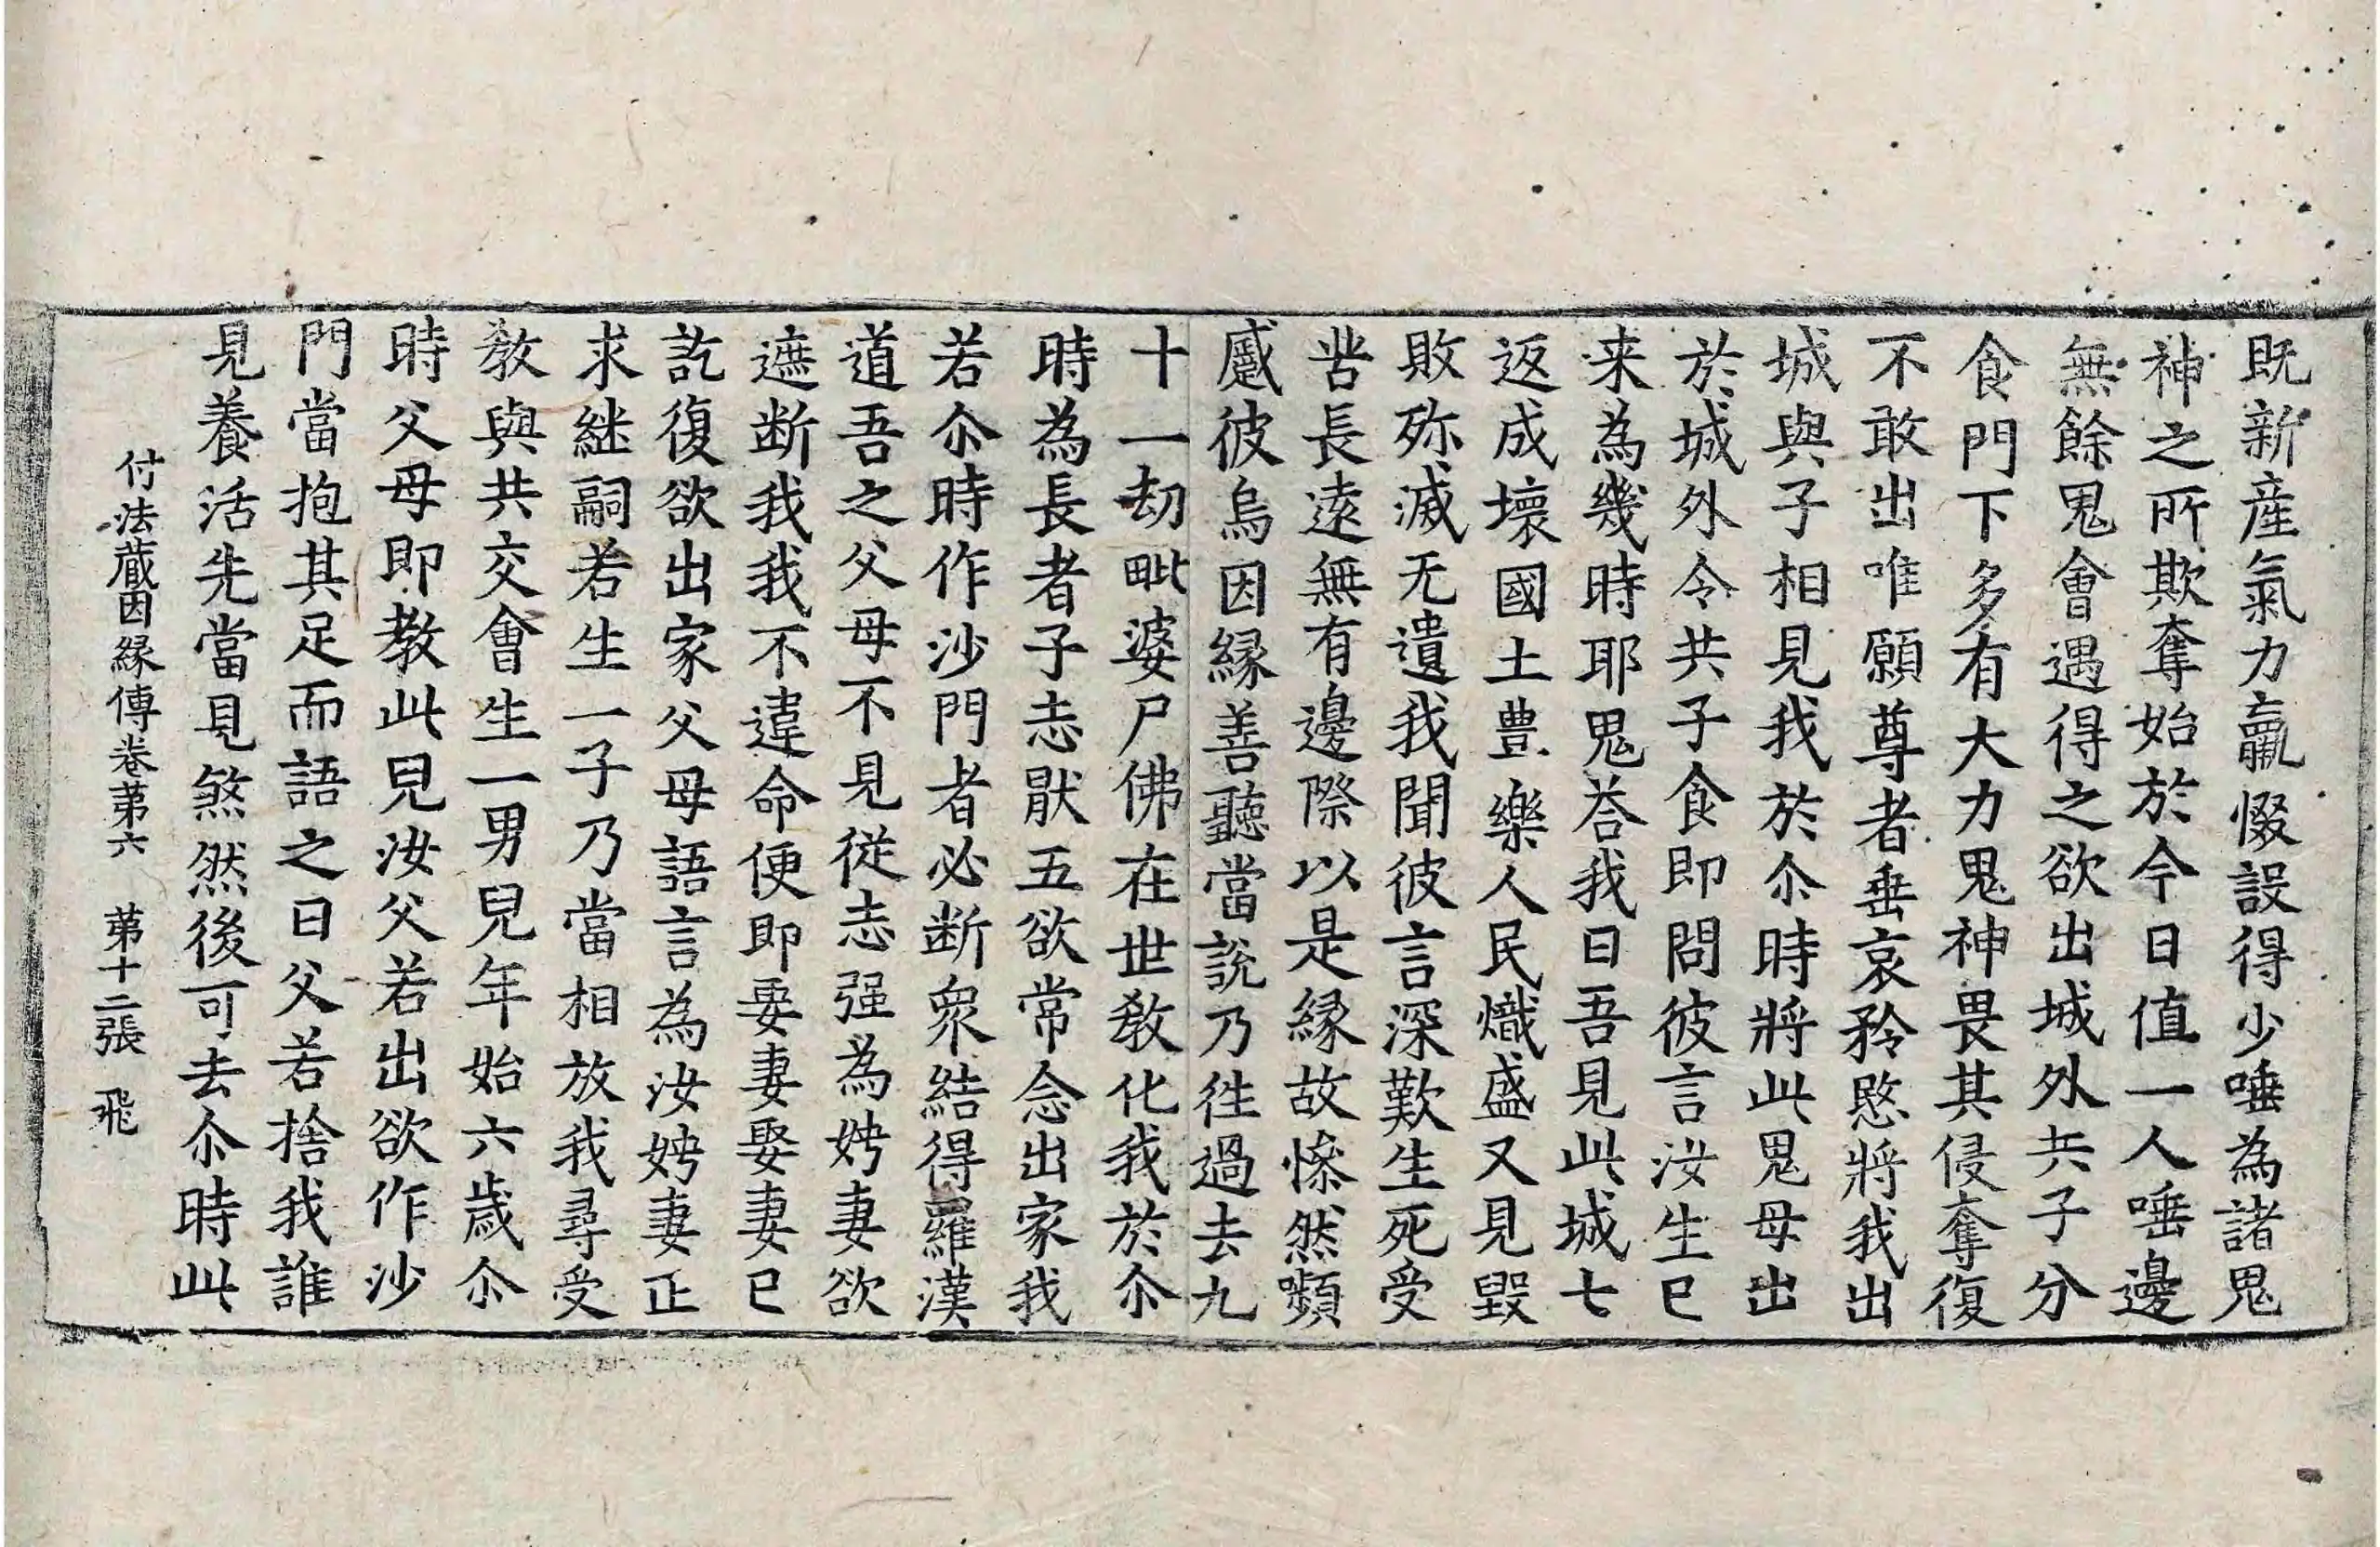 既新產氣力羸惙設得少唾為諸鬼
神之所欺奪始於今日值一人唾邊
無餘鬼會遇得之欲出城外共子分
食門下多有大力鬼神畏其侵奪復
不敢出唯願尊者垂哀矜愍將我出
城與子相見我於尒時將此鬼母出
於城外令共子食即問彼言汝生已
来為幾時耶鬼荅我曰吾見此城七
返成壞國土豊樂人民熾盛又見毀
敗殄滅无遺我聞彼言深歎生死受
苦長遠無有邊際以是緣故慘然嚬
蹙彼烏因緣善聽當說乃徃過去九
十一劫毗婆尸佛在世教化我於尒
時為長者子志猒五欲常念出家我
若尒時作沙門者必断衆結得羅漢
道吾之父母不見從志强為娉妻欲
遮断我我不違命便即娶妻娶妻已
訖復欲出家父母語言為汝娉妻正
求継嗣若生一子乃當相放我尋受
教與共交會生一男兒年始六歲尒
時父母即教此兒汝父若出欲作沙
門當抱其足而語之曰父若捨我誰
見養活先當見煞然後可去尒時此
付法藏因緣傳卷苐六 苐十二張 飛